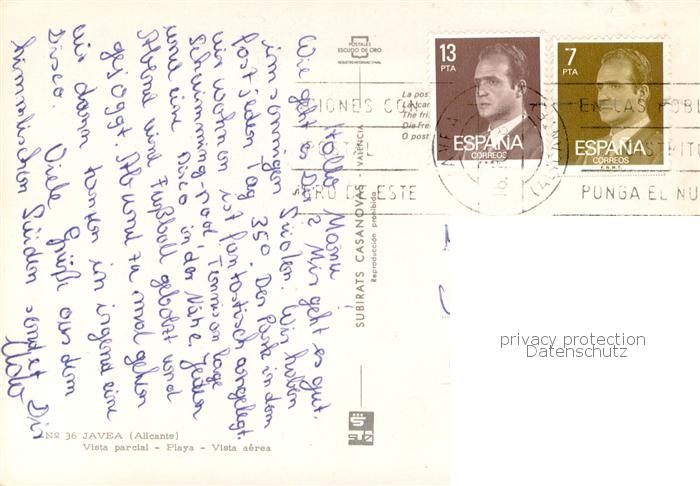 Hallo Manu!
Wie geht es Dir? Mir geht es gut.
im sonnigen Süden. Wir haben
fast jeden Tag 35°. Der Park in dem
wir wohnen ist fantastisch angelegt.
Schwimming-pool, Tennisanlage
und eine Disco in der Nähe. Jeden
Abend wird Fußball gebolzt und
gejoggt. Ab und zu mal gehen
wir dann tanzen in irgend eine
Disco. Viele Grüße aus dem
himmlischen Süden sendet Dir
Udo
POSTALES
ESCUDO DE ORO
SUBIRATS CASANOVAS - VALENCIA
Reproducción prohibida
La pos
The fri
O post
13
PTA
ESPAÑA
CORREOS
F.N.M.T.
7
PTA
ESPAÑA
CORREOS
F.N.M.T.
IONES CON
POSTAL
ESTE
EN LAS POBL
DISTRITO
PONGA EL NU
privacy protection
Datenschutz
Nº 36 JAVEA (Alicante)
Vista parcial - Playa - Vista aérea